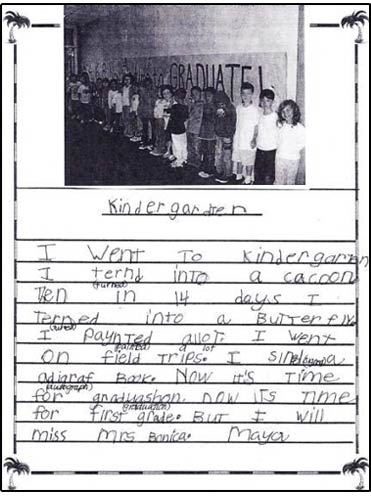 GRADUATE!
Kindergarten
I Went To Kindergarten
I ternd into a cacoon
(turned)
Ten in 14 days I
terned into a Butterfly.
(turned)
I paynted allot. I went
(painted) a lot
on field trips. I sind a
(signed)
adigraf Book. Now it's Time
(autograph)
for graduashon. Now its Time
(graduation)
for first grade. But I will
miss Mrs Bonica. Maya